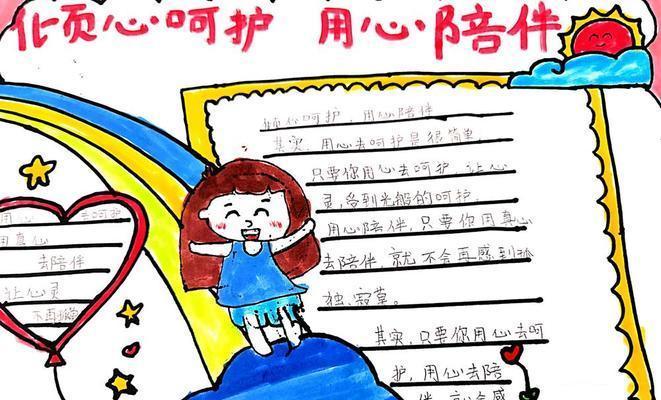 倾心呵护 用心陪伴
倾心呵护，用心陪伴
其实，用心去呵护是很简单，
只要你用心去呵护，让心
灵，受到光般的呵护，
用心陪伴，只要你用真心
去陪伴，就不会再感到孤
独、寂寞。
其实，只要你用心去呵
护，用心去陪
伴，就会感
用心 去呵护
用真心
去陪伴
让心灵
不再孤独